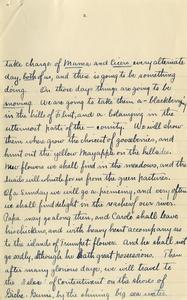 2.
take charge of Mama and Cicero every alternate
day, both of us, and there is going to be something
doing. On those days things are going to be
moving. We are going to take them a-blackberrying
in the hills of and a-
uttermost parts of the county. We will show
them where grow the choicest of gooseberries, and
hunt out the yellow Mayapple on the hillside.
New flowers we shall find in the meadows, and the
smile will white for us from the green pastures.
Of a Sunday we will go a-picnicing, and very often
we shall find delight in the reaches of our river.
Papa may go along then, and Carol shall leave
his chickens, and with heavy heart accompany us
to the island of Trumpet flower. And he shall not
go sadly, though he hath great possessions. Then
after many glorious days, we will travel to
the Isles of Contentment on the shores of
by the shining big sea water.